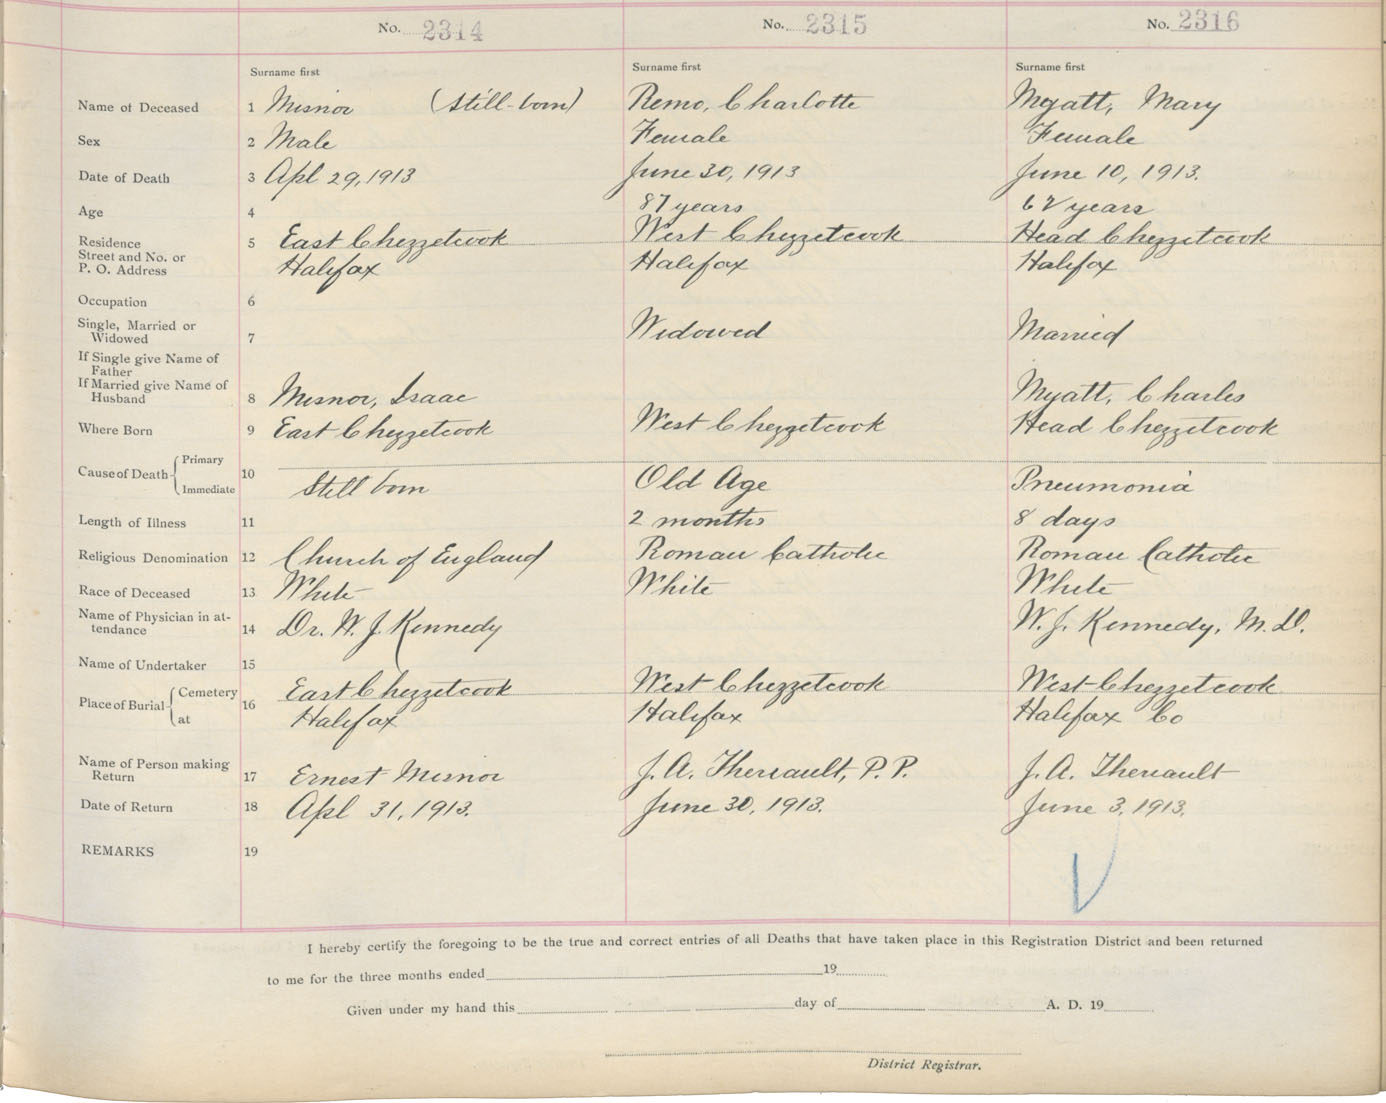 No. 2314 No. 2315 No. 2316
Surname first Surname first Surname first
Name of Deceased 1 Misnor (Still-born) Remo, Charlotte Myatt, Mary
Sex 2 Male Female Female
Date of Death 3 Apl 29, 1913 June 30, 1913 June 10, 1913.
Age 4 87 years 62 years
Residence 5 East Chezzetcook West Chezzetcook Head Chezzetcook
Street and No. or
P. O. Address Halifax Halifax Halifax
Occupation 6
Single, Married or
Widowed 7 Widowed Married
If Single give Name of
Father
If Married give Name of
Husband 8 Misnor, Isaac Myatt, Charles
Where Born 9 East Chezzetcook West Chezzetcook Head Chezzetcook
Cause of Death Primary
10 Old Age Pneumonia
Immediate Still born
Length of Illness 11 2 months 8 days
Religious Denomination 12 Church of England Roman Catholic Roman Catholic
Race of Deceased 13 White White White
Name of Physician in at-
tendance 14 Dr. W. J. Kennedy W. J. Kennedy, M.D.
Name of Undertaker 15
Place of Burial Cemetery 16 East Chezzetcook West Chezzetcook West Chezzetcook
at Halifax Halifax Halifax Co
Name of Person making
Return 17 Ernest Misnor J. A. Theriault, P. P. J. A. Theriault
Date of Return 18 Apl 31, 1913. June 30, 1913. June 3, 1913.
REMARKS 19
I hereby certify the foregoing to be the true and correct entries of all Deaths that have taken place in this Registration District and been returned
to me for the three months ended 19
Given under my hand this day of A. D. 19
District Registrar.